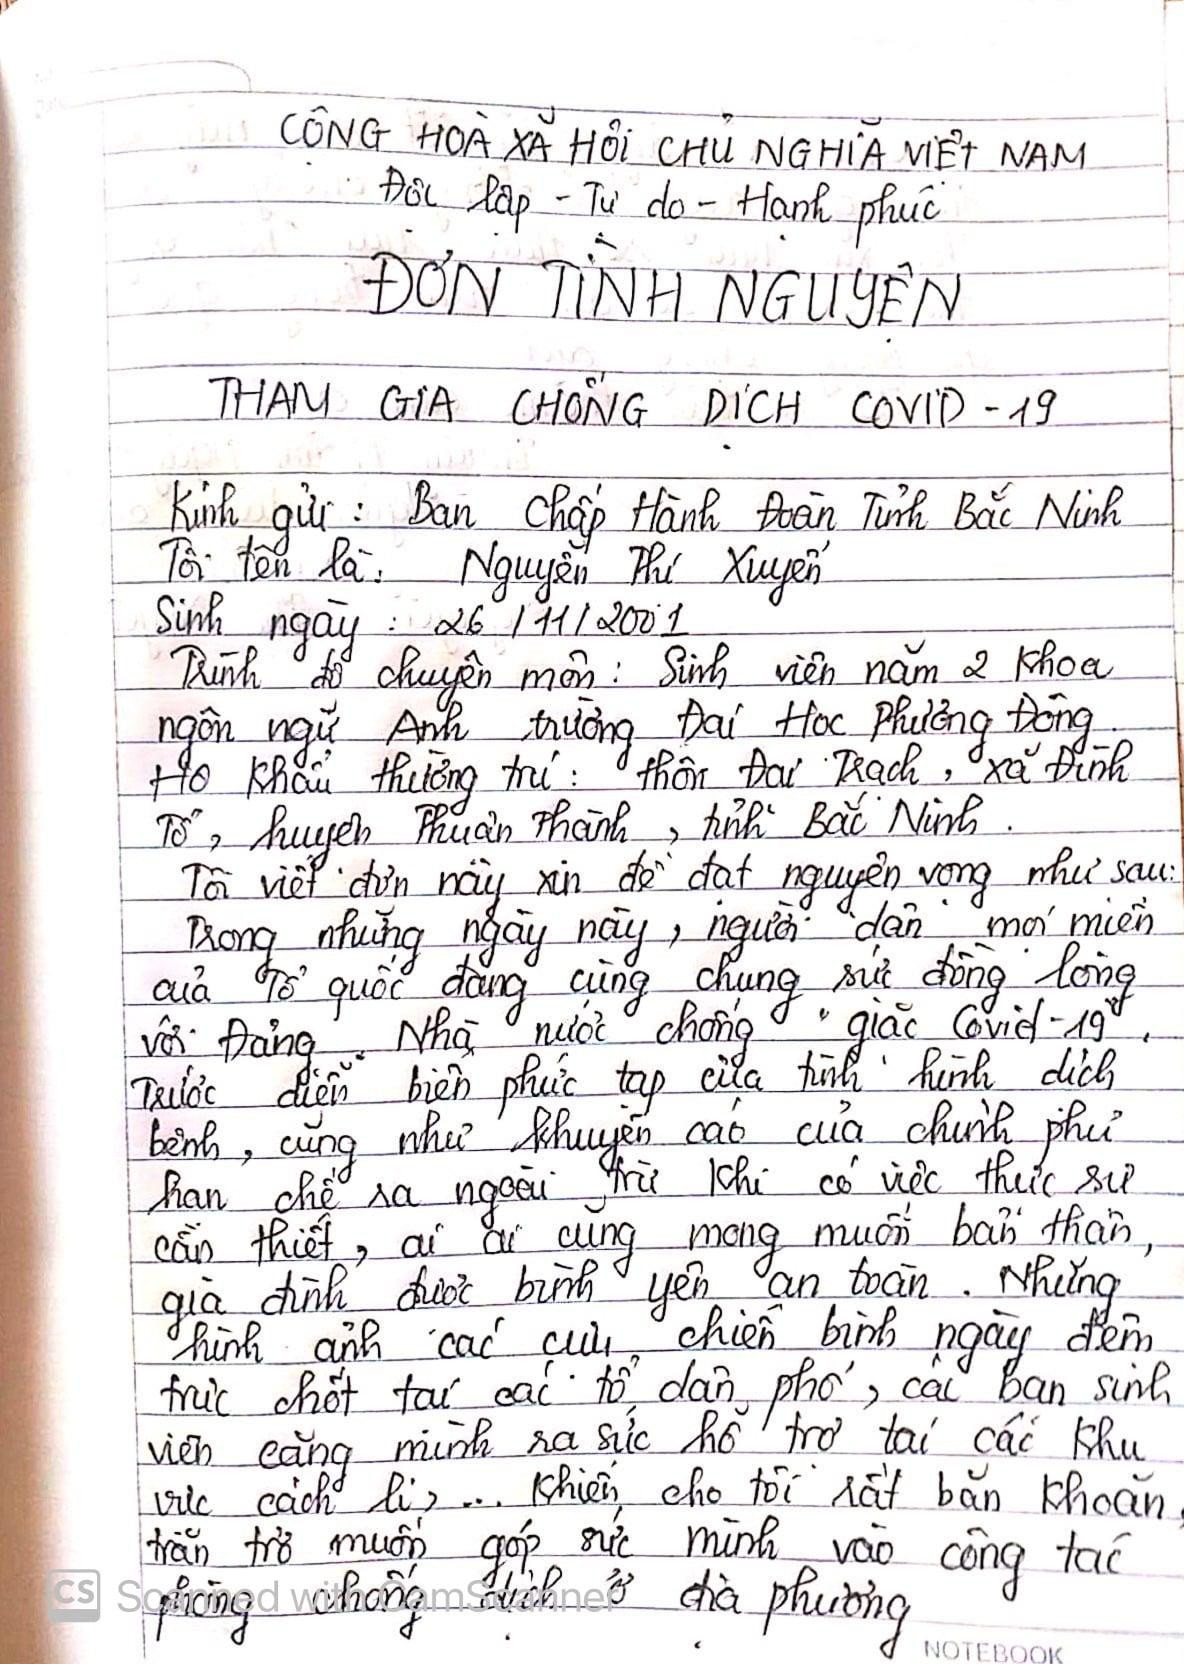 CỘNG HOÀ XÃ HỘI CHỦ NGHĨA VIỆT NAM
Độc lập - Tự do - Hạnh phúc
ĐƠN TÌNH NGUYỆN
THAM GIA CHỐNG DỊCH COVID-19
Kính gửi : Ban Chấp Hành Đoàn Tỉnh Bắc Ninh
Tôi tên là : Nguyễn Thị Xuyến
Sinh ngày : 26 / 11 / 2001
Trình độ chuyên môn : Sinh viên năm 2 Khoa
ngôn ngữ Anh trường Đại Học Phương Đông
Hộ khẩu thường trú : thôn Đại Trạch , xã Đình
Tổ , huyện Thuận Thành , tỉnh Bắc Ninh .
Tôi viết đơn này xin đề đạt nguyện vọng như sau:
Trong những ngày này , người dân mọi miền
của Tổ quốc đang cùng chung sức đồng lòng
với Đảng Nhà nước chống "giặc Covid-19" .
Trước diễn biến phức tạp của tình hình dịch
bệnh , cũng như khuyến cáo của chính phủ
hạn chế ra ngoài trừ khi có việc thực sự
cần thiết , ai ai cũng mong muốn bản thân ,
gia đình được bình yên an toàn . Những
hình ảnh các cựu chiến binh ngày đêm
trực chốt tại các tổ dân phố , các bạn sinh
viên căng mình ra sức hỗ trợ tại các khu
vực cách li , ... khiến cho tôi rất băn khoăn ,
trăn trở muốn góp sức mình vào công tác
phòng chống dịch ở địa phương
CS Scanned with CamScanner
NOTEBOOK